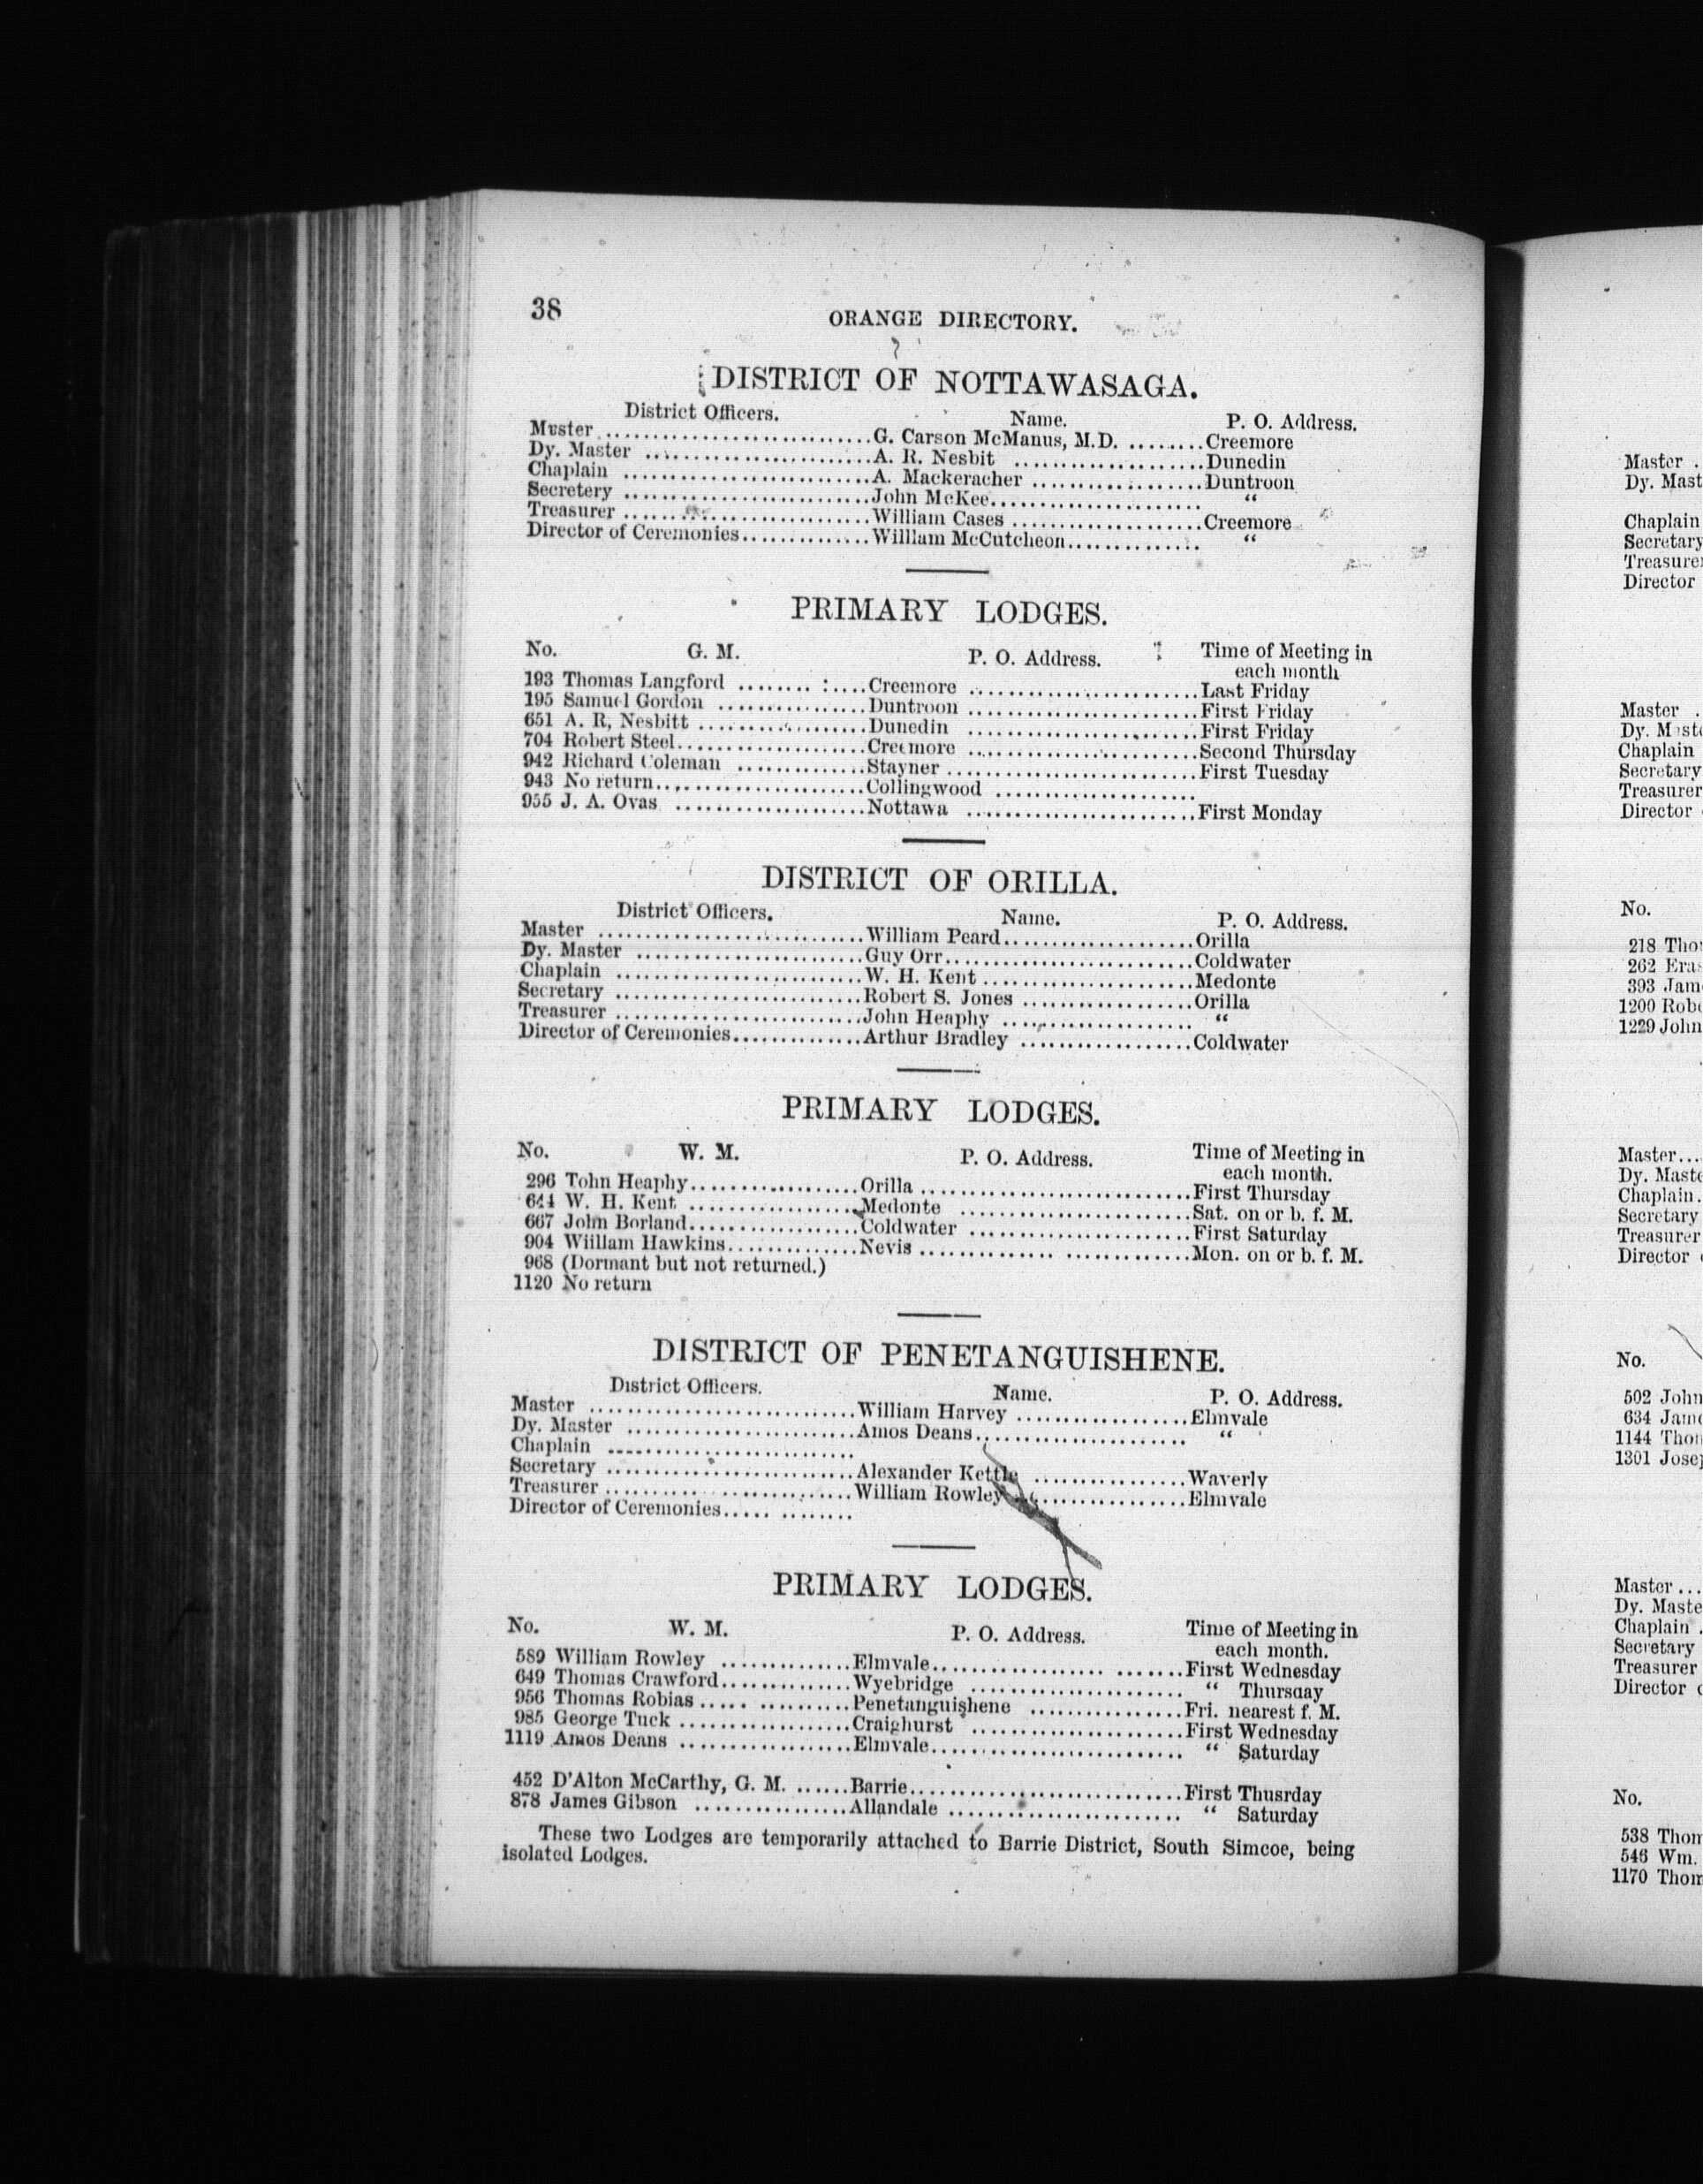 38
ORANGE DIRECTORY.
DISTRICT OF NOTTAWASAGA.
District Officers. Name. P. O. Address.
Master ........................... G. Carson McManus, M.D. ........ Creemore
Dy. Master ....................... A. R. Nesbit .................... Dunedin
Chaplain ......................... A. Mackeracher .................. Duntroon
Secretery ......................... John McKee...................... “
Treasurer ......................... William Cases .................... Creemore
Director of Ceremonies............. Willlam McCutcheon.............. “
PRIMARY LODGES.
No. G. M. P. O. Address. Time of Meeting in
each month
193 Thomas Langford ............ Creemore ........................ Last Friday
195 Samuel Gordon ............... Duntroon ........................ First Friday
651 A. R, Nesbitt .................. Dunedin ........................ First Friday
704 Robert Steel.................... Creemore ........................ Second Thursday
942 Richard Coleman ............. Stayner .......................... First Tuesday
943 No return...................... Collingwood .....................
955 J. A. Ovas .................... Nottawa ........................ First Monday
DISTRICT OF ORILLA.
District Officers. Name. P. O. Address.
Master ........................... William Peard................... Orilla
Dy. Master ....................... Guy Orr.......................... Coldwater
Chaplain ......................... W. H. Kent ...................... Medonte
Secretary ......................... Robert S. Jones .................. Orilla
Treasurer ......................... John Heaphy .................... “
Director of Ceremonies............. Arthur Bradley .................. Coldwater
PRIMARY LODGES.
No. W. M. P. O. Address. Time of Meeting in
each month.
296 Tohn Heaphy.................. Orilla ............................ First Thursday
644 W. H. Kent .................. Medonte ........................ Sat. on or b. f. M.
667 John Borland.................. Coldwater ....................... First Saturday
904 Wiillam Hawkins.............. Nevis ............................ Mon. on or b. f. M.
968 (Dormant but not returned.)
1120 No return
DISTRICT OF PENETANGUISHENE.
District Officers. Name. P. O. Address.
Master ........................... William Harvey .................. Elmvale
Dy. Master ....................... Amos Deans...................... “
Chaplain .........................
Secretary ......................... Alexander Kettle ................ Waverly
Treasurer ......................... William Rowley ................ Elmvale
Director of Ceremonies..... ........
PRIMARY LODGES.
No. W. M. P. O. Address. Time of Meeting in
each month.
589 William Rowley .............. Elmvale.................. ....... First Wednesday
649 Thomas Crawford............. Wyebridge ...................... “ Thursday
956 Thomas Robias ..... .......... Penetanguishene ................ Fri. nearest f. M.
985 George Tuck .................. Craighurst ...................... First Wednesday
1119 Amos Deans ................. Elmvale.......................... “ Saturday
452 D'Alton McCarthy, G. M. ...... Barrie............................ First Thusrday
878 James Gibson ................ Allandale ........................ “ Saturday
These two Lodges are temporarily attached to Barrie District, South Simcoe, being
isolated Lodges.
Master .
Dy. Mast
Chaplain
Secretary
Treasurer
Director
Master .
Dy. Maste
Chaplain
Secretary
Treasurer
Director
No.
218 Tho
262 Era
393 Jam
1200 Rob
1229 John
Master...
Dy. Maste
Chaplain.
Secretary
Treasurer
Director
No.
502 John
634 Jame
1144 Thom
1301 Josep
Master ...
Dy. Maste
Chaplain .
Secretary
Treasurer
Director
No.
538 Thom
546 Wm.
1170 Thom